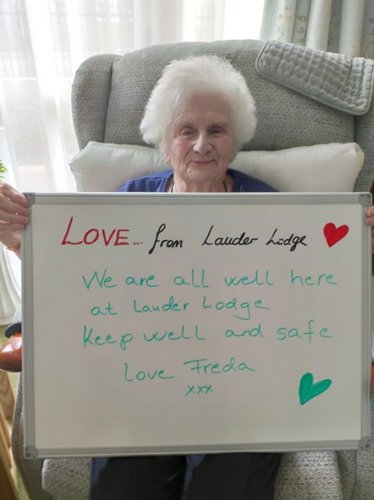 LOVE... from Lauder Lodge
We are all well here
at Lauder Lodge
Keep well and safe
Love Freda
xxx